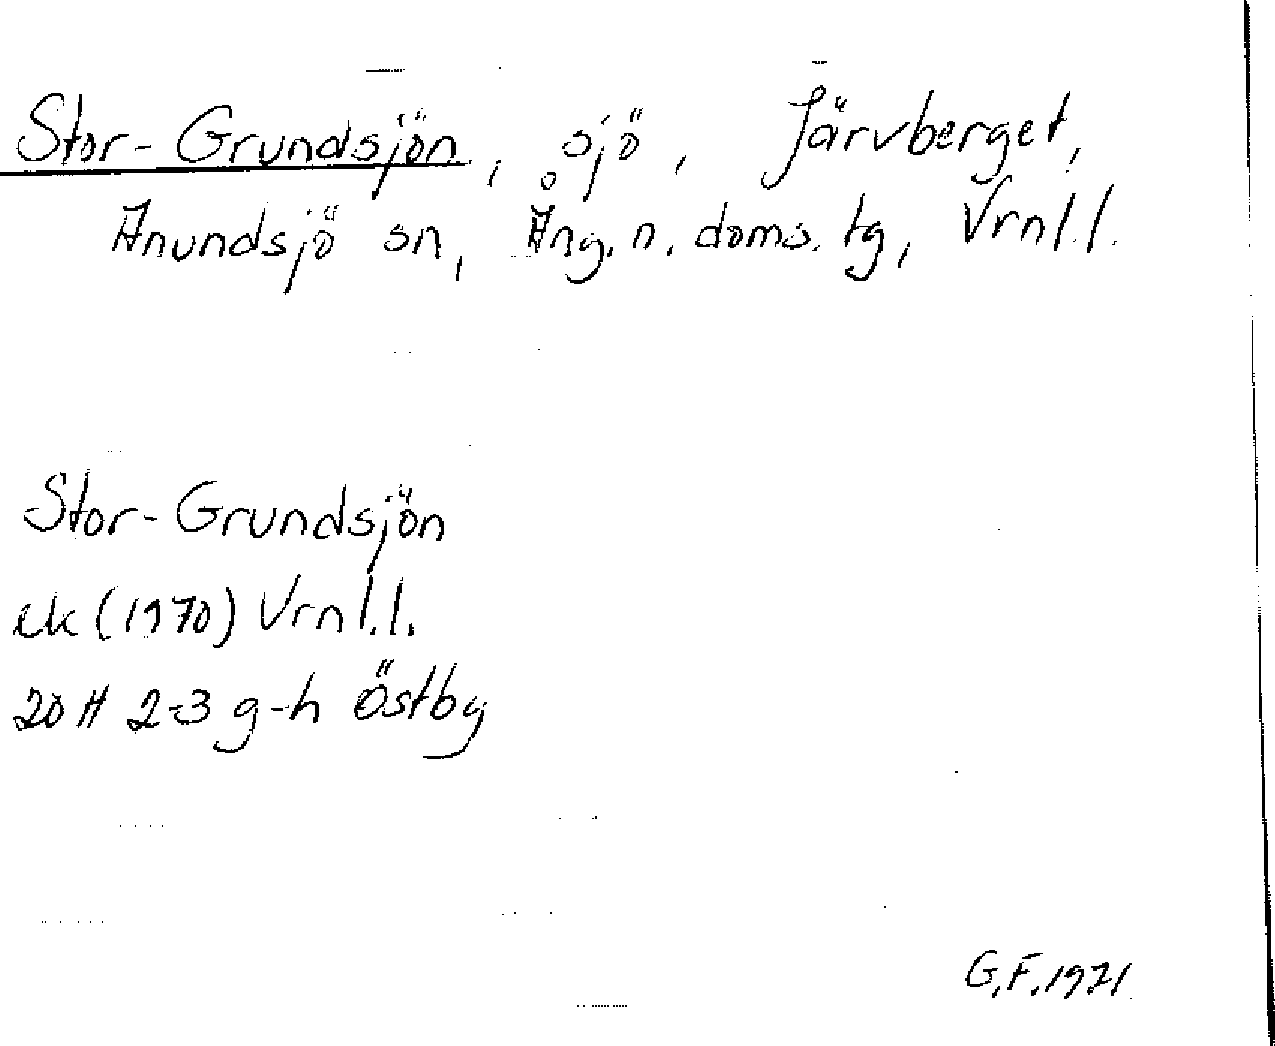 Stor-Grundsjön, sjö, Järvberget,
Anundsjö sn, Ång. n. doms. tg, Vrnl.l.
Stor-Grundsjön
ek (1970) Vrnl.l.
20 H 2-3 g-h Östby
G.F. 1971